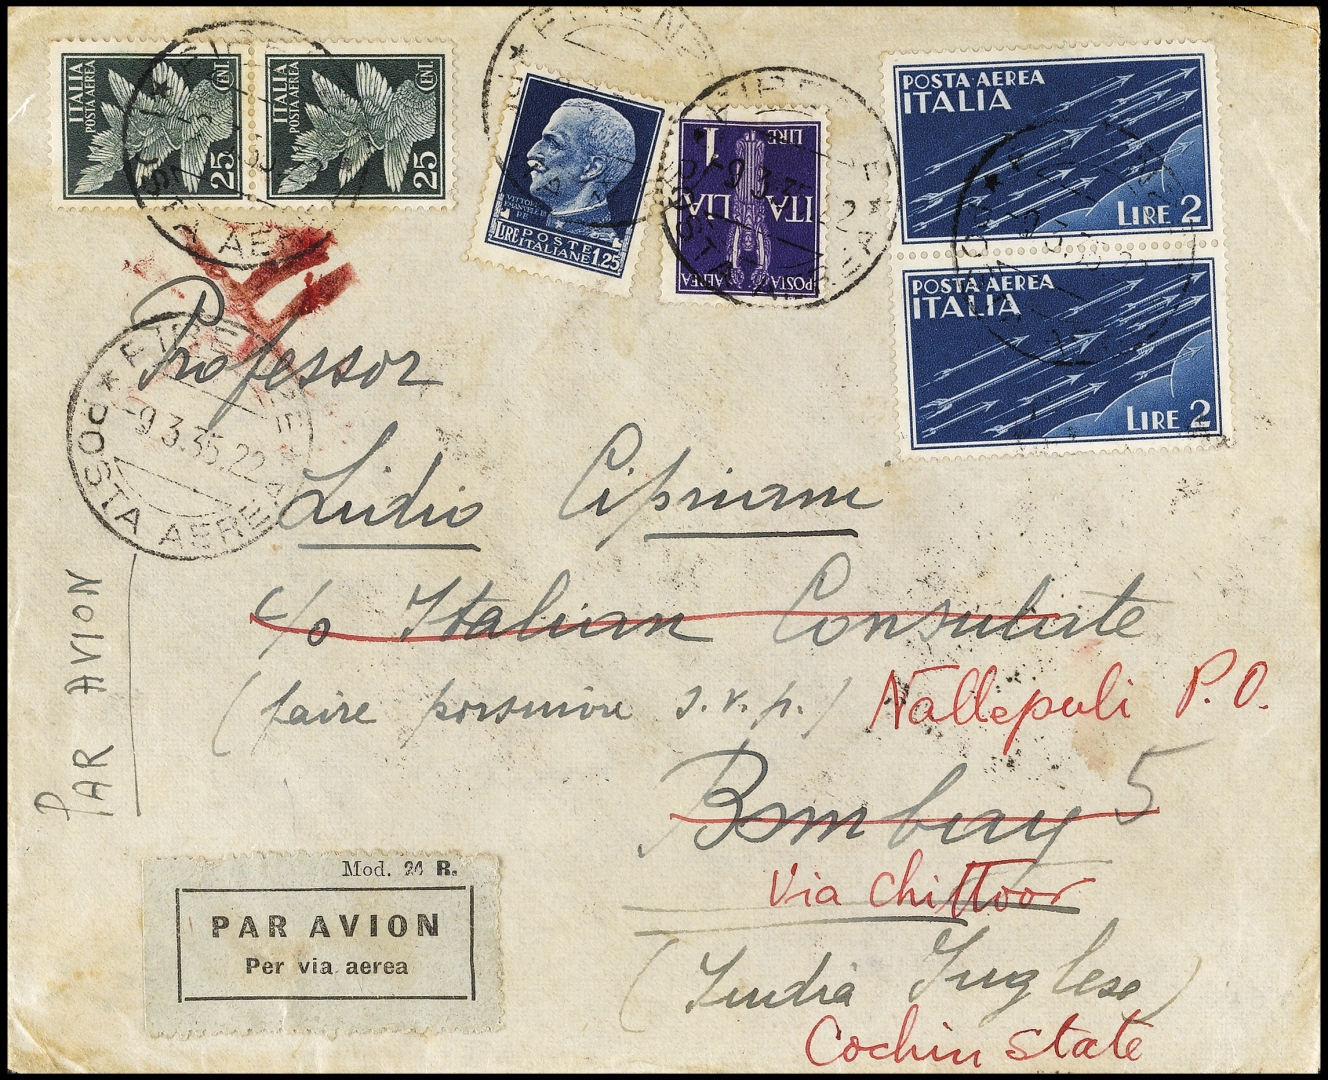 ITALIA
POSTA AEREA
25
CENT.
ITALIA
POSTA AEREA
25
CENT.
VITTORIO
EMANUELE III
RE
LIRE POSTE
ITALIANE 1.25
1 LIRE
ITALIA
POSTA AEREA
POSTA AEREA
ITALIA
LIRE 2
POSTA AEREA
ITALIA
LIRE 2
FIRENZE
-9.3.35.22
POSTA AEREA
FIRENZE
-9.3.35.22
POSTA AEREA
Professor
Lidio Cipriani
c/o Italian Consulate
(faire poursuivre s.v.p.) Nallepuli P.O.
Bombay 5
Via Chittoor
(India Inglese)
Cochin State
PAR AVION
Mod. 24 R.
PAR AVION
Per via aerea